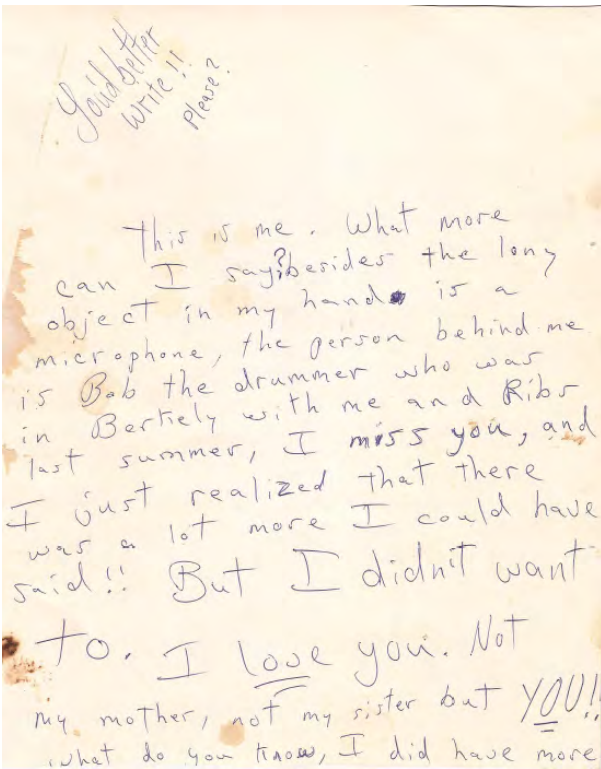 You'd better
write!!
Please?
This is me. What more
can I say? besides the long
object in my hand is a
microphone, the person behind me
is Bob the drummer who was
in Berkiely with me and Ribs
last summer, I miss you, and
I just realized that there
was a lot more I could have
said!! But I didn't want
to. I love you. Not
my mother, not my sister but YOU!!
what do you know, I did have more